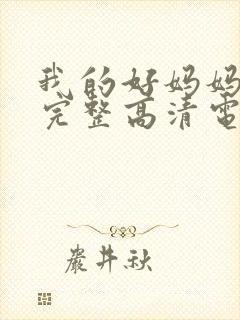 我的好妈妈
完整高清電
嚴井秋